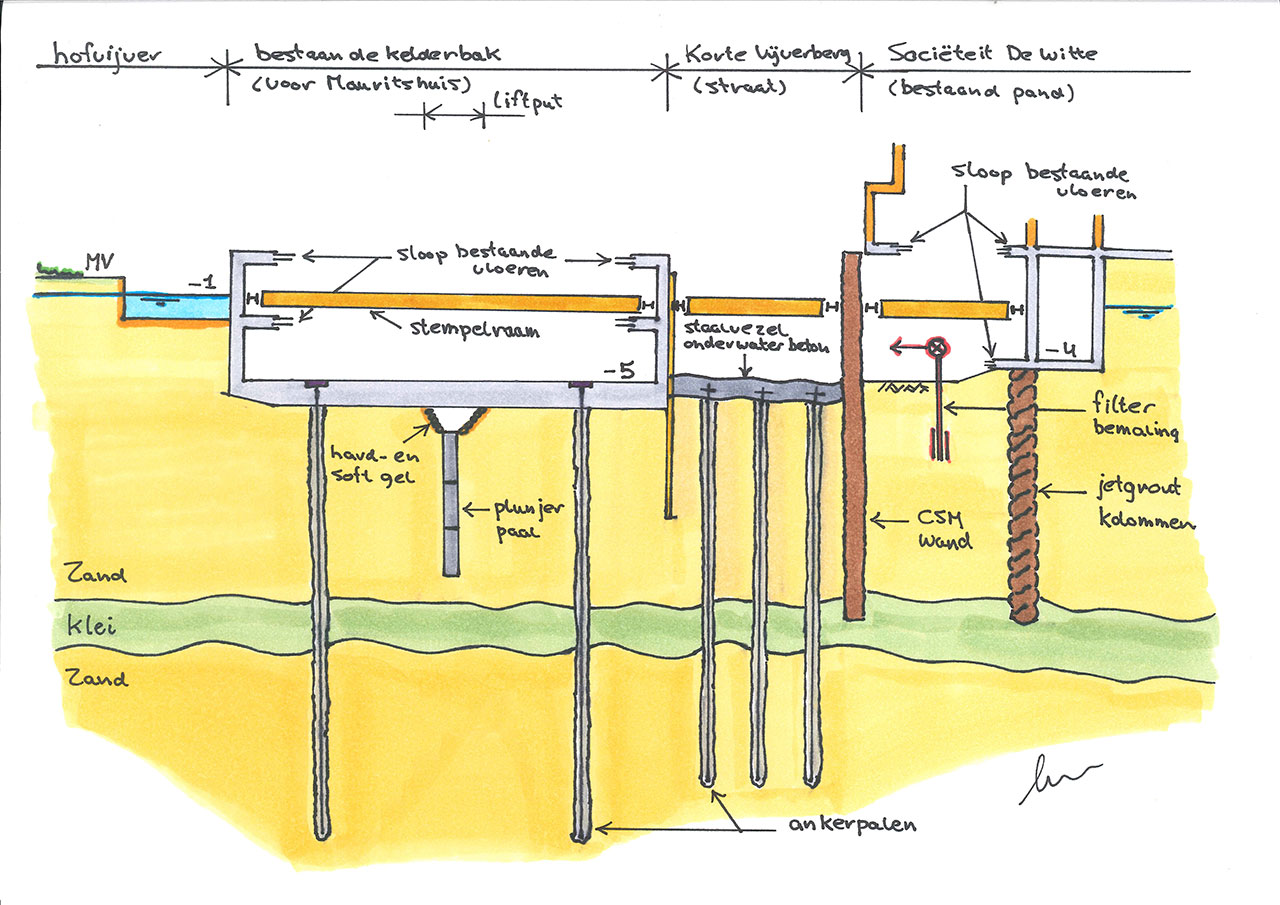 hofvijver
bestaande kelderbak
(voor Mauritshuis)
liftput
Korte Vijverberg
(straat)
Sociëteit De Witte
(bestaand pand)
sloop bestaande
vloeren
MV
-1
sloop bestaande
vloeren
stempelraam
staalvezel
onderwaterbeton
-5
-4
filter
bemaling
hard- en
soft gel
plunjer
paal
jetgrout
kolommen
CSM
wand
Zand
klei
Zand
ankerpalen